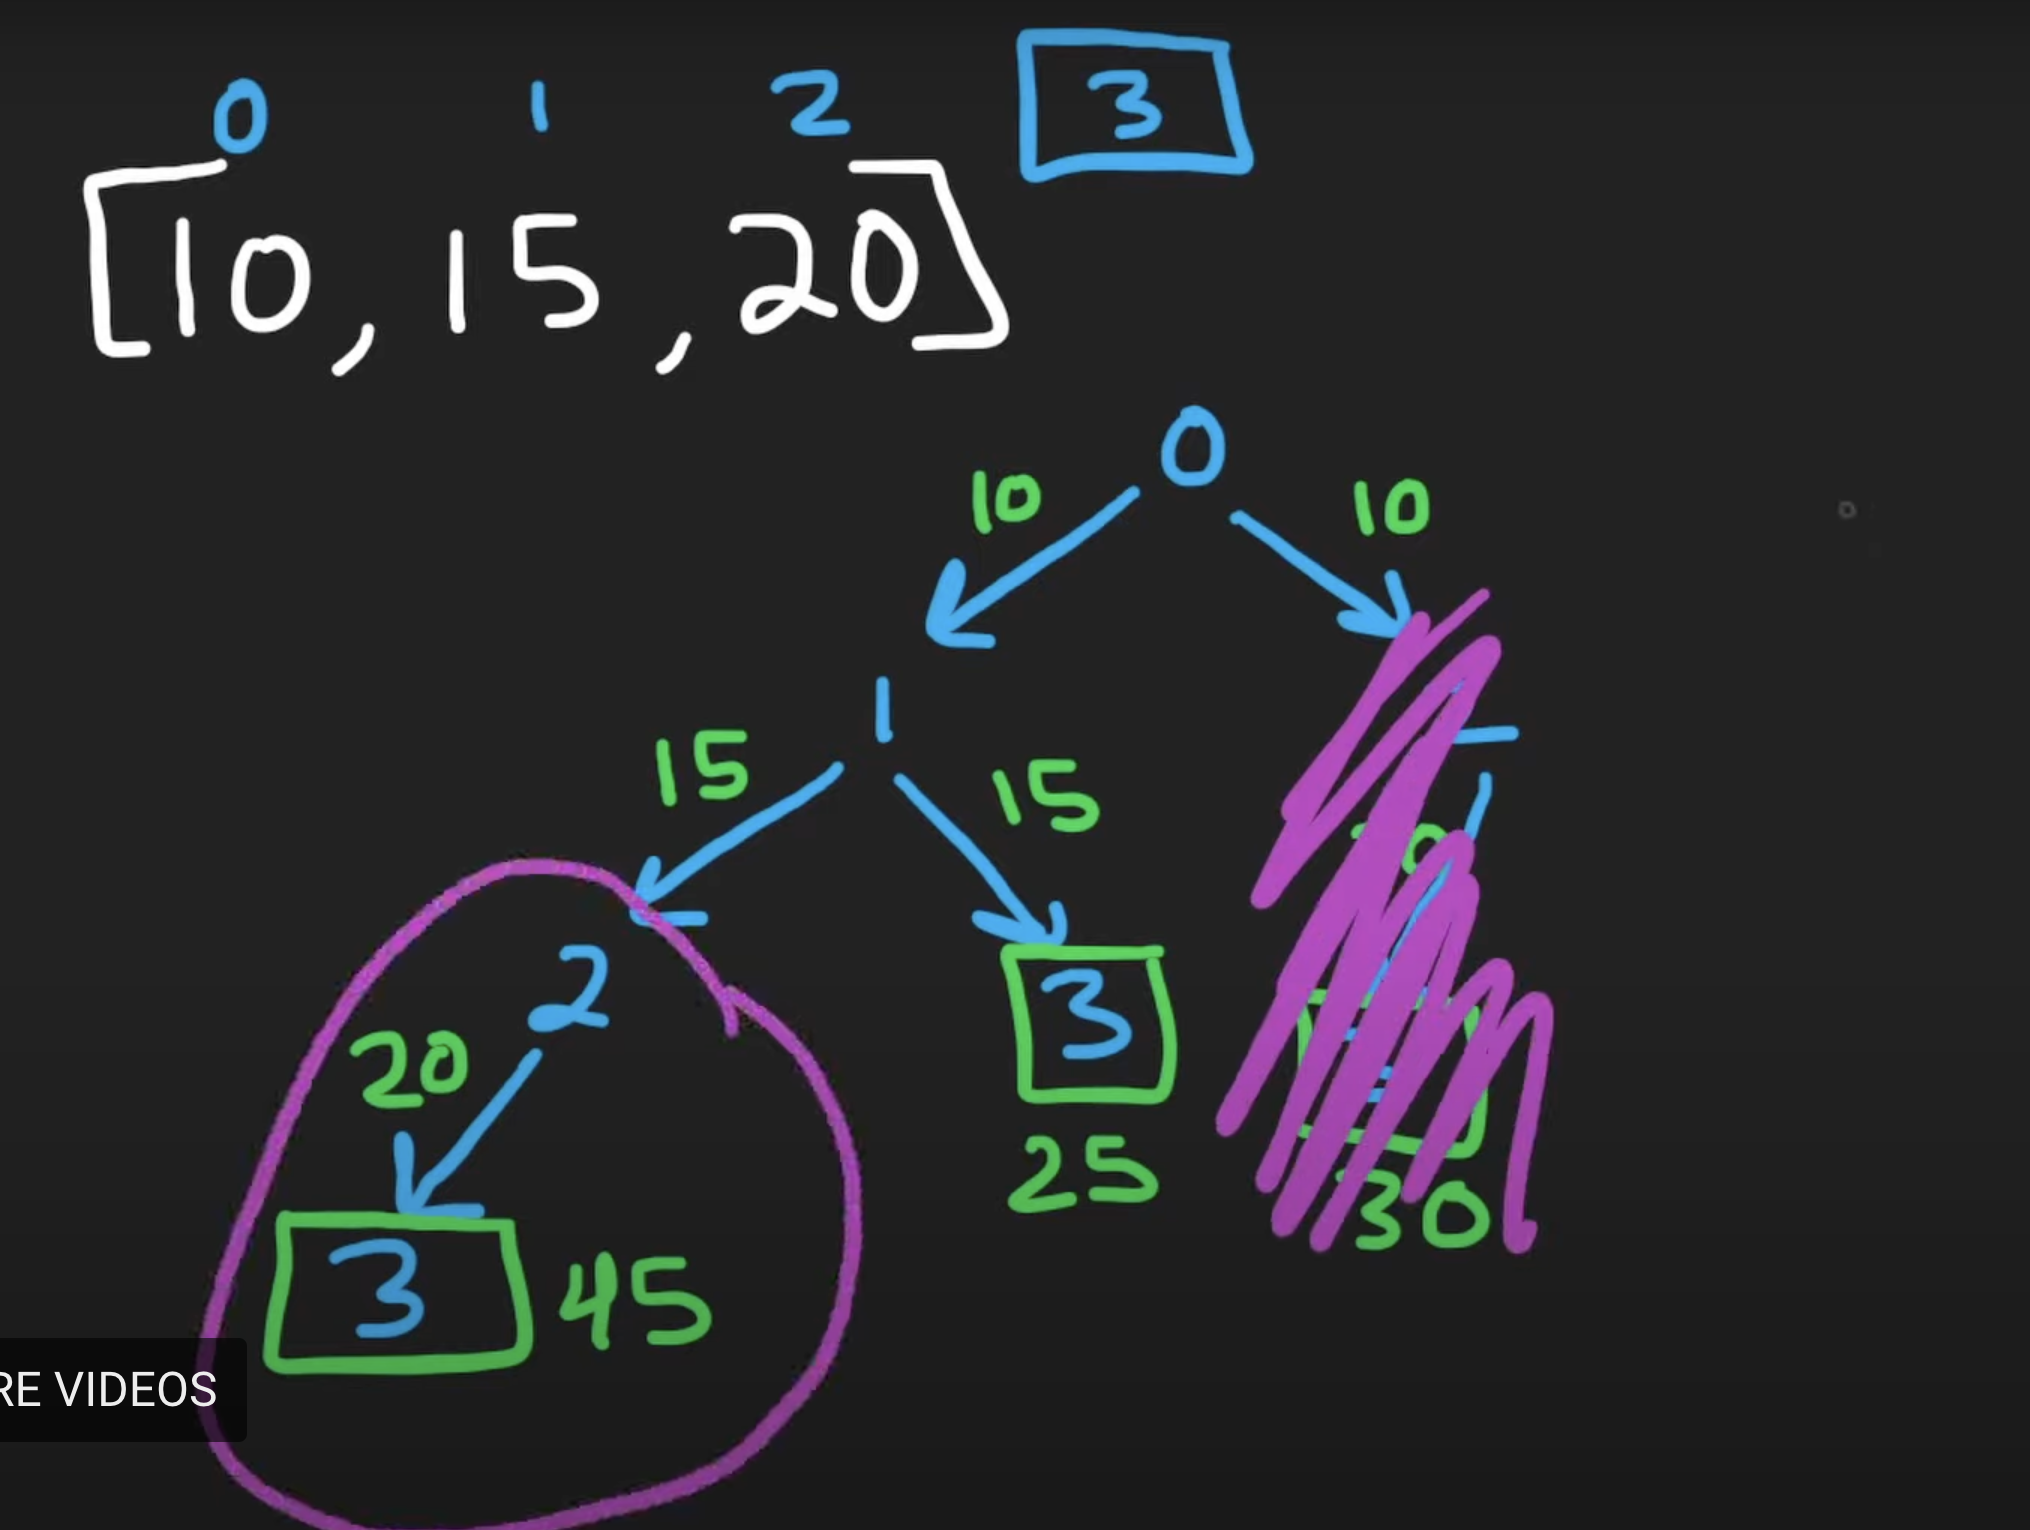 0 1 2 3
[10, 15, 20]
0
10 10
1
15 15
2 3
20
25
30
3 45
RE VIDEOS